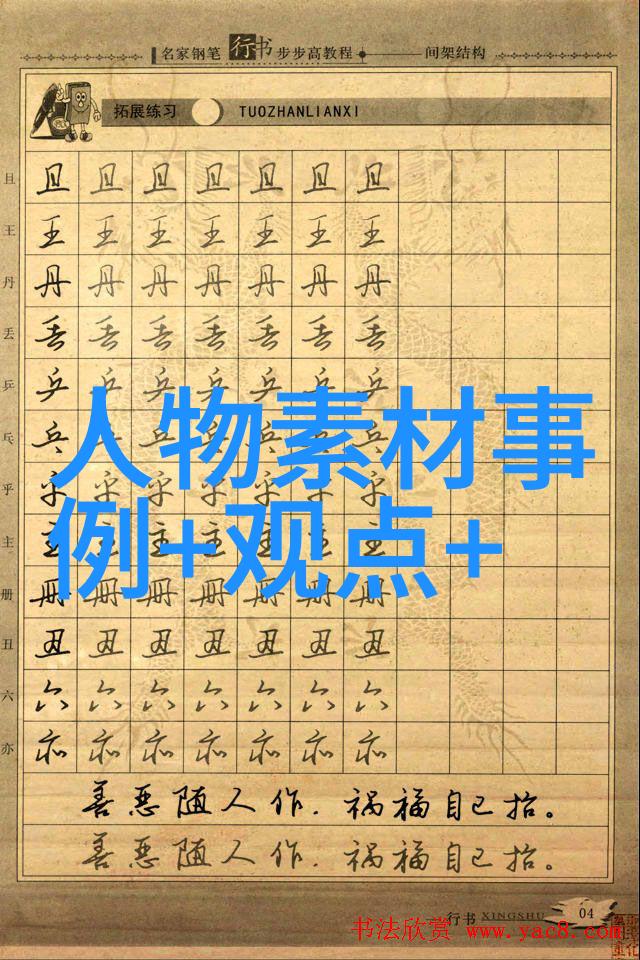 名家钢笔行书步步高教程 间架结构
拓展练习 TUOZHANLIANXI
且 且 且 且 且 且 且 且
王 王 王 王 王 王 王 王
丹 丹 丹 丹 丹 丹 丹 丹
丢 丢 丢 丢 丢 丢 丢 丢
乒 乒 乒 乒 乒 乒 乒 乒
乓 乓 乓 乓 乓 乓 乓 乓
人物素材事
乎 乎 乎 乎 乎 乎 乎 乎
主 主 主 主 主 主 主 主
例+观点+
册 册 册 册 册 册 册 册
丑 丑 丑 丑 丑 丑 丑 丑
六 六 六 六 六 六 六 六
亦 亦 亦 亦 亦 亦 亦 亦
善恶随人作，祸福自己招。
善恶随人作，祸福自己招。
行书 XINGSHU 04
书法欣赏 www.yac8.com